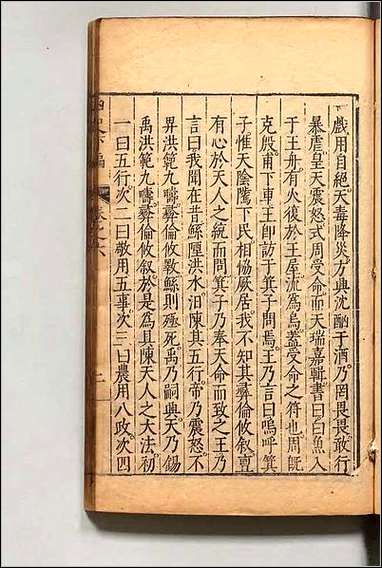 戲用自絕天毒降災方興沈酗于酒乃罔畏畏敢行
暴虐皇天震怒式周受命而天瑞嘉輯書曰白魚入
于王舟有火復於王屋流為烏蓋受命之符也周既
克殷武下車王即訪于箕子問焉王乃言曰嗚呼箕
子惟天陰隲下民相協厥居我不知其彝倫攸敘亶
有心於天人之統而問箕子乃奉天命而致之王乃
言曰我聞在昔鯀陻洪水汨陳其五行帝乃震怒不
畀洪範九疇彝倫攸斁鯀則殛死禹乃嗣興天乃錫
禹洪範九疇彝倫攸敘於是為具陳天人之大法初
一曰五行次二曰敬用五事次三曰農用八政次四
卷之六
二